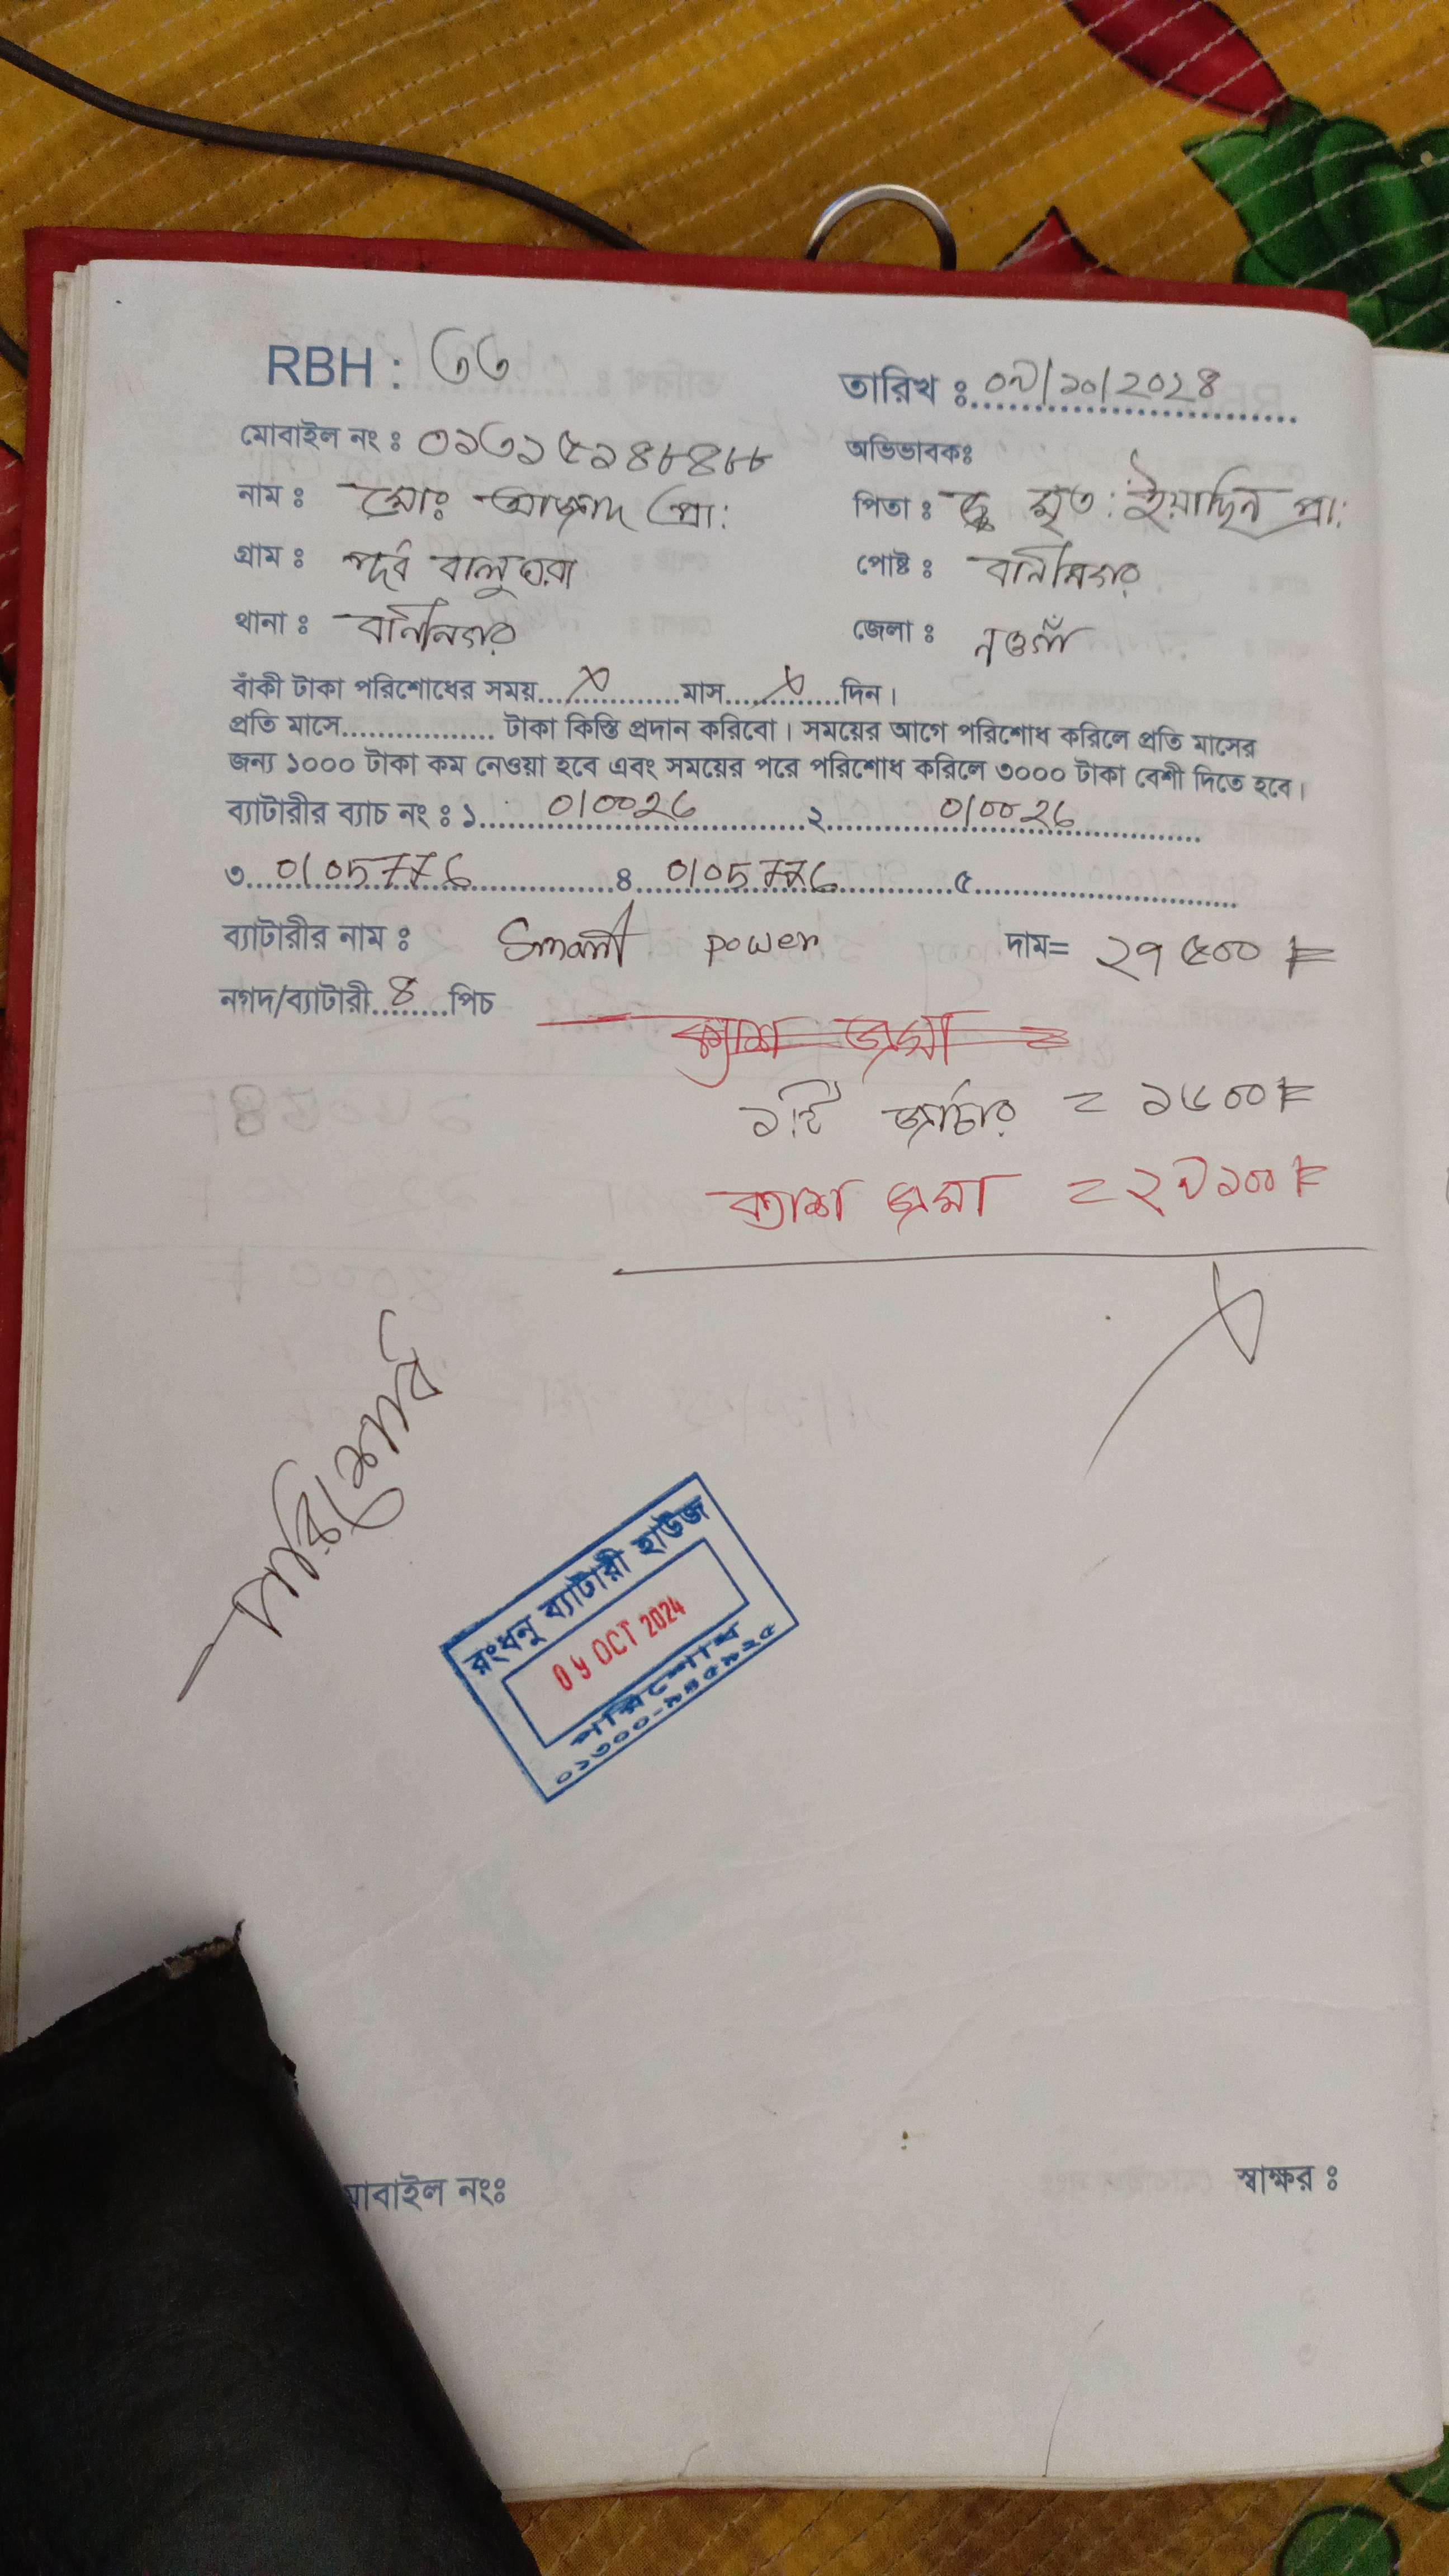 RBH : ৩৩
তারিখ ঃ ০৭/১০/২০২৪
মোবাইল নং ঃ ০১৩১৫১৪৮৪৮৮
অভিভাবকঃ
নাম ঃ মোঃ আজাদ প্রা:
পিতা ঃ মৃত: ইয়াছিন প্রা:
গ্রাম ঃ পূর্ব বালুভরা
পোষ্ট ঃ রানীনগর
থানা ঃ রানীনগর
জেলা ঃ নওগাঁ
বাঁকী টাকা পরিশোধের সময়..... x .....মাস..... x .....দিন।
প্রতি মাসে................. টাকা কিস্তি প্রদান করিবো। সময়ের আগে পরিশোধ করিলে প্রতি মাসের
জন্য ১০০০ টাকা কম নেওয়া হবে এবং সময়ের পরে পরিশোধ করিলে ৩০০০ টাকা বেশী দিতে হবে।
ব্যাটারীর ব্যাচ নং ঃ ১..... 010026 .....২..... 010026
৩..... 0105776 .....৪..... 0105776 .....৫.....
ব্যাটারীর নাম ঃ Smart power দাম= ২৭৫০০৳
নগদ/ব্যাটারী.... ৪ ....পিচ
ক্যাশ জমা =
১টি চার্জার = ১৬০০৳
ক্যাশ জমা = ২৯১০০৳
পরিশোধ
রংধনু ব্যাটারী হাউজ
OCT 2024
পরিশোধ
০১৩০০-৯৪৫৯২৫
মোবাইল নংঃ
স্বাক্ষর ঃ